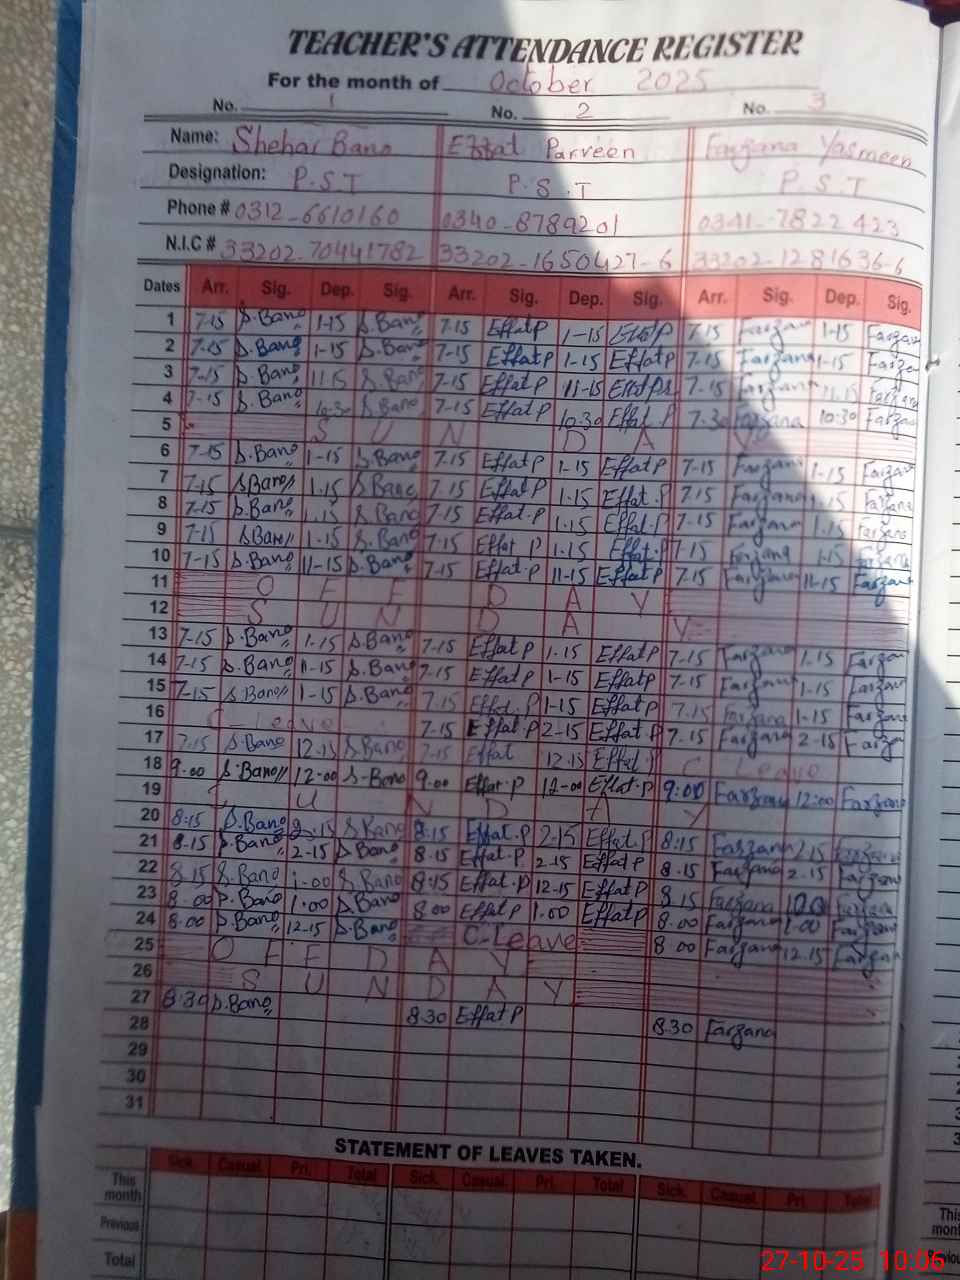 TEACHER'S ATTENDANCE REGISTER
For the month of October 2025
No. 1 No. 2 No. 3
Name: Shehar Bano Effat Parveen Farzana Yasmeen
Designation: P.S.T P.S.T P.S.T
Phone # 0312-6610160 0340-8789201 0341-7822423
N.I.C # 33202-70441782 33202-1650427-6 33202-1281636-6
Dates Arr. Sig. Dep. Sig. Arr. Sig. Dep. Sig. Arr. Sig. Dep. Sig.
1 7-15 S.Bano 1-15 S.Bano 7.15 Effat P 1-15 Effat P 7.15 Farzana 1-15 Farzana
2 7-15 S.Bano 1-15 S.Bano 7-15 Effat P 1-15 Effat P 7-15 Farzana 1-15 Farzana
3 7-15 S.Bano 11.15 S.Bano 7-15 Effat P 11-15 7-15 Farzana 11.15 Farzana
4 7-15 S.Bano 10:30 S.Bano 7-15 Effat P 10.30 Effat.P 7-30 Farzana 10:30 Farzana
5 S U N D A Y
6 7-15 S.Bano 1-15 S.Bano 7.15 Effat P 1-15 Effat P 7-15 Farzana 1-15 Farzana
7 7-15 S.Bano 1.15 S.Bano 7.15 Effat P 1.15 Effat.P 7.15 Farzana 1.15 Farzana
8 7-15 S.Bano 1.15 S.Bano 7.15 Effat.P 1.15 Effat.P 7-15 Farzana 1.15 Farzana
9 7-15 S.Bano 1-15 S.Bano 7.15 Effat P 1.15 Effat.P 7.15 Farzana 1-15 Farzana
10 7-15 S.Bano 11-15 S.Bano 7-15 Effat.P 11-15 Effat P 7.15 Farzana 11-15 Farzana
11 O F F D A Y
12 S U N D A Y
13 7-15 S.Bano 1-15 S.Bano 7-15 Effat P 1-15 Effat P 7-15 Farzana 1-15 Farzana
14 7-15 S.Bano 1-15 S.Bano 7-15 Effat P 1-15 Effat P 7-15 Farzana 1-15 Farzana
15 7-15 S.Bano 1-15 S.Bano 7.15 Effat.P 1-15 Effat P 7.15 Farzana 1-15 Farzana
16 C-Leave 7-15 Effat.P 2-15 Effat.P 7.15 Farzana 2-15 Farzana
17 7-15 S.Bano 12.15 S.Bano 7-15 Effat 12.15 Effat.P C Leave
18 9.00 S.Bano 12-00 S-Bano 9.00 Effat.P 12-00 Effat.P 9:00 Farzana 12:00 Farzana
19 S U N D A Y
20 8:15 S.Bano 2.15 S.Bano 8:15 Effat.P 2-15 Effat.P 8:15 Farzana 2.15 Farzana
21 8.15 S.Bano 2-15 S.Bano 8.15 Effat P 2.15 Effat P 8.15 Farzana 2.15 Farzana
22 8.15 S.Bano 1-00 S.Bano 8:15 Effat.P 12-15 Effat P 8.15 Farzana Farzana
23 8.00 S.Bano 1.00 S.Bano 8.00 Effat P 1.00 Effat P 8.00 Farzana 1.00 Farzana
24 8.00 S.Bano 12-15 S.Bano C-Leave 8 00 Farzana 12.15 Farzana
25 O F F D A Y
26 S U N D A Y
27 8:30 S.Bano 8.30 Effat P 8.30 Farzana
28
29
30
31
STATEMENT OF LEAVES TAKEN.
Sick. Casual. Pri. Total Sick. Casual. Pri. Total Sick. Casual. Pri. Total
This month
Previous
Total
27-10-25 10:06